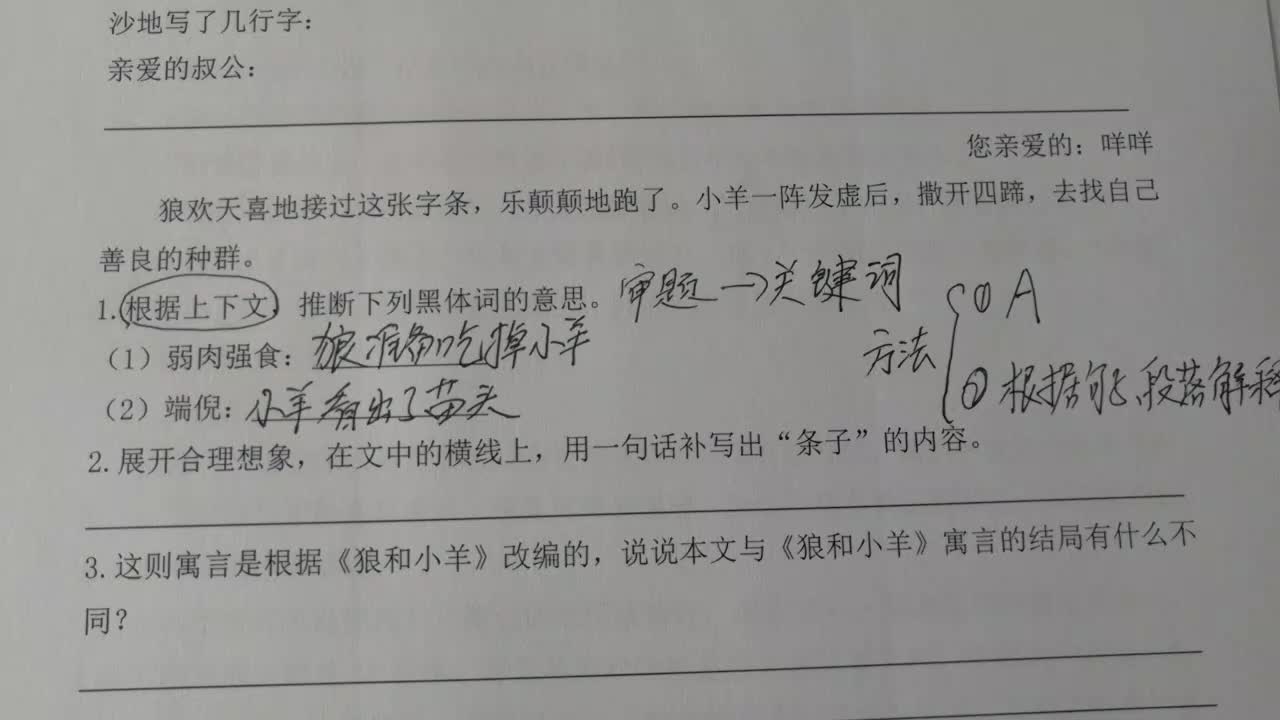 沙地写了几行字：
亲爱的叔公：
您亲爱的：咩咩
狼欢天喜地接过这张字条，乐颠颠地跑了。小羊一阵发虚后，撒开四蹄，去找自己
善良的种群。
1.根据上下文，推断下列黑体词的意思。 审题→关键词
（1）弱肉强食：狼准备吃掉小羊
方法 ① A
② 根据句子、段落解释
（2）端倪：小羊看出了苗头
2.展开合理想象，在文中的横线上，用一句话补写出“条子”的内容。
3.这则寓言是根据《狼和小羊》改编的，说说本文与《狼和小羊》寓言的结局有什么不
同？